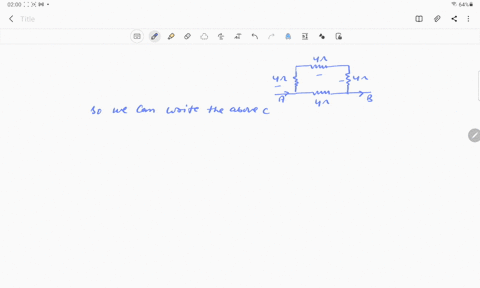 02:00
64%
Title
4Ω
4Ω
4Ω
A
B
4Ω
So we can write the above c